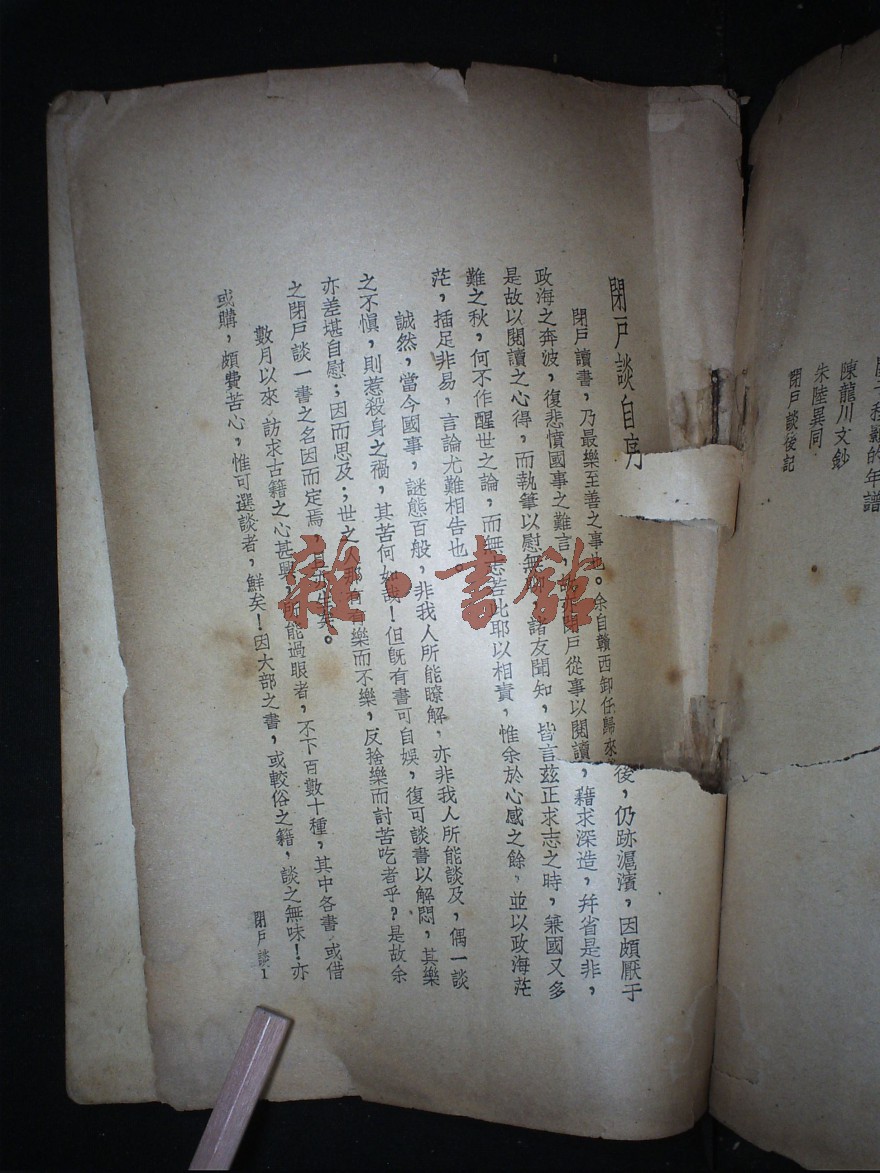 陳龍川文鈔
朱陸異同
閉戶談後記
閉戶談自序
閉戶讀書，乃最樂至善之事也。余自贛西卸任歸來後，仍跡滬濱，因頗厭于
政海之奔波，復悲憤國事之難言，閉戶從事以閱讀，藉求深造，幷省是非，
是故以閱讀之心得，而執筆以慰無聊，諸友聞知，皆言茲正求志之時，兼國又多
難之秋，何不作醒世之論，而無志若此耶以相責，惟余於心感之餘，並以政海茫
茫，插足非易，言論尤難相告也。
誠然，當今國事，謎態百般，非我人所能瞭解，亦非我人所能談及，偶一談
之不愼，則惹殺身之禍，其苦何如哉！但旣有書可自娛，復可談書以解悶，其樂
亦差堪自慰；因而思及；世之人那有有樂而不樂，反捨樂而討苦吃者乎？是故余
之閉戶談一書之名因而定焉，矣。
數月以來，訪求古籍之心甚興，所能過眼者，不下百數十種，其中各書，或借
或購，頗費苦心，惟可選談者，鮮矣！因大部之書，或較俗之籍，談之無味！亦
閉戶談 1
雜·書館